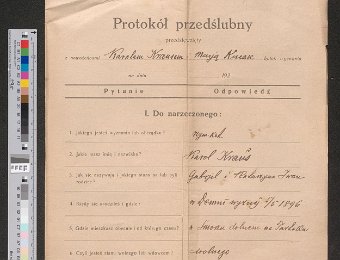 Protokół przedślubny
przedsięwzięty
z narzeczonemi Karolem Krausem i Marją
na dniu 192
Pytanie Odpowiedź
I. Do narzeczonego:
1. Jakiego jesteś wyznania i obrządku? rzym. kat.
2. Jakie masz imię i nazwisko? Karol Kraus
3. Jak się nazywają i jakiego stanu są lub byli rodzice? Gabrjel i Katarzyna
4. Kiedy się urodziłeś i gdzie? w 1896
5. Gdzie mieszkasz obecnie i od którego czasu?
6. Czyli jesteś stanu wolnego lub wdowcem? wolnego